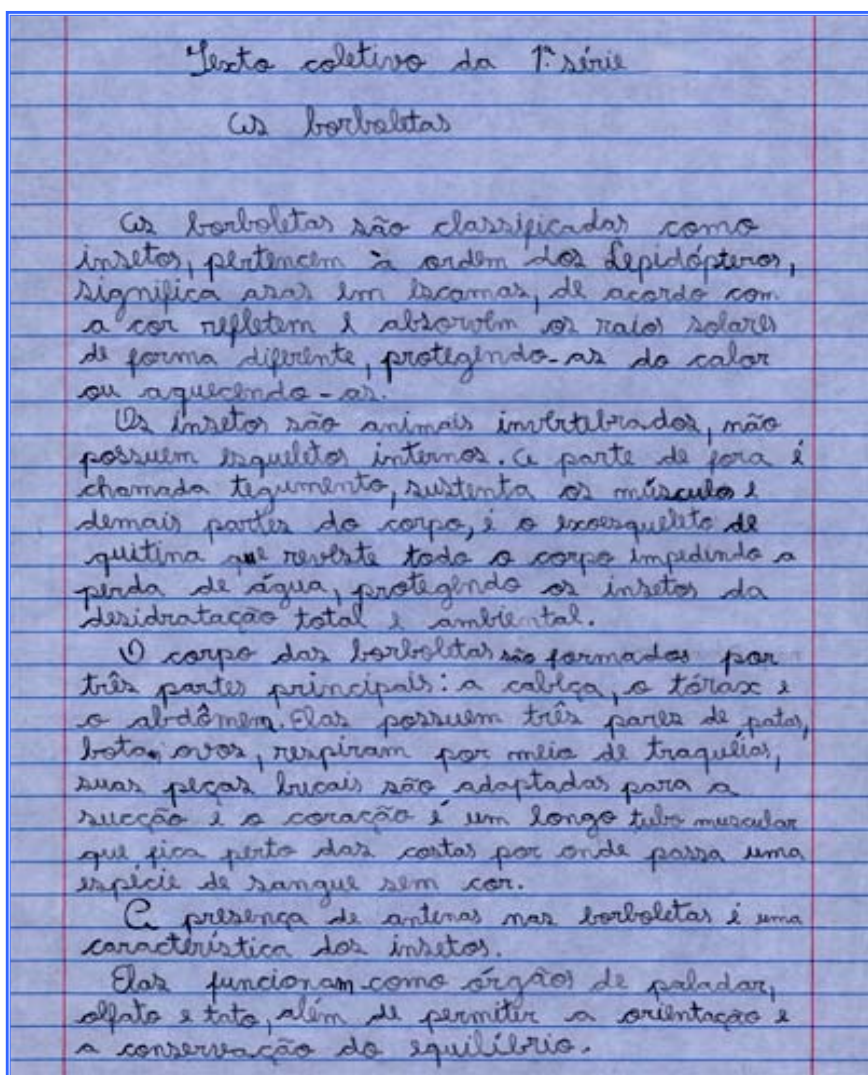 Texto coletivo da 1ª série
As borboletas
As borboletas são classificadas como
insetos, pertencem à ordem dos Lepidópteros,
significa asas em escamas, de acordo com
a cor refletem e absorvem os raios solares
de forma diferente, protegendo-as do calor
ou aquecendo-as.
Os insetos são animais invertebrados, não
possuem esqueletos internos. A parte de fora é
chamada tegumento, sustenta os músculos e
demais partes do corpo, é o exoesqueleto de
quitina que reveste todo o corpo impedindo a
perda de água, protegendo os insetos da
desidratação total e ambiental.
O corpo das borboletas são formados por
três partes principais: a cabeça, o tórax e
o abdômem. Elas possuem três pares de patas,
bota ovos, respiram por meio de traquéias,
suas peças bucais são adaptadas para a
sucção e o coração é um longo tubo muscular
que fica perto das costas por onde passa uma
espécie de sangue sem cor.
A presença de antenas nas borboletas é uma
característica dos insetos.
Elas funcionam como órgãos de paladar,
olfato e tato, além de permitir a orientação e
a conservação do equilíbrio.